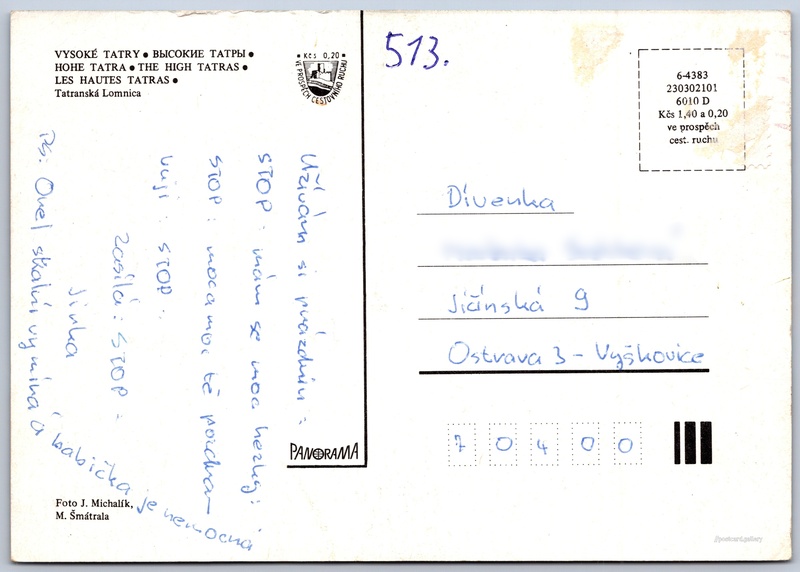 VYSOKÉ TATRY • ВЫСОКИЕ ТАТРЫ •
HOHE TATRA • THE HIGH TATRAS •
LES HAUTES TATRAS •
Tatranská Lomnica
• Kčs 0,20 •
VE PROSPĚCH CESTOVNÍHO RUCHU
513.
6-4383
230302101
6010 D
Kčs 1,40 a 0,20
ve prospěch
cest. ruchu
Užívám si prázdnin :
STOP : mám se moc hezky :
STOP : moc a moc tě pozdra-
vuji : STOP :
zasílá : STOP :
Jirka
Ps. Onel skalní vymírá a babička je nemocná
Dívenka
Jičínská 9
Ostrava 3 - Vyškovice
7 0 4 0 0
PANORAMA
Foto J. Michalík,
M. Šmátrala
//postcard.gallery